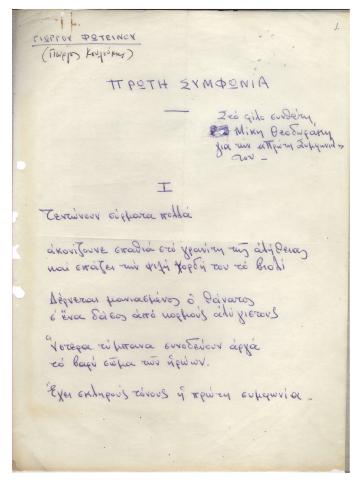 1
ΓΙΩΡΓΟΥ ΦΩΤΕΙΝΟΥ
(Γιώργος Κουλούκης)
ΠΡΩΤΗ ΣΥΜΦΩΝΙΑ
Στό φίλο συνθέτη
Μίκη Θεοδωράκη
για την «Πρώτη Συμφωνία»
του –
I
Τεντώνουν σύρματα πολλά
ἀκονίζουνε σπαθιά στό γρανίτη τῆς ἀλήθειας
καί σπάζει την ψιλή χορδή του τό βιολί
Δέρνεται μανιασμένος ὁ θάνατος
σ' ἕνα δάσος ἀπό κορμούς ἀλύγιστους
Ὕστερα τύμπανα συνοδεύουν ἀργά
τό βαρύ σῶμα τῶν ἡρώων.
Ἔχει σκληρούς τόνους ἡ πρώτη συμφωνία.